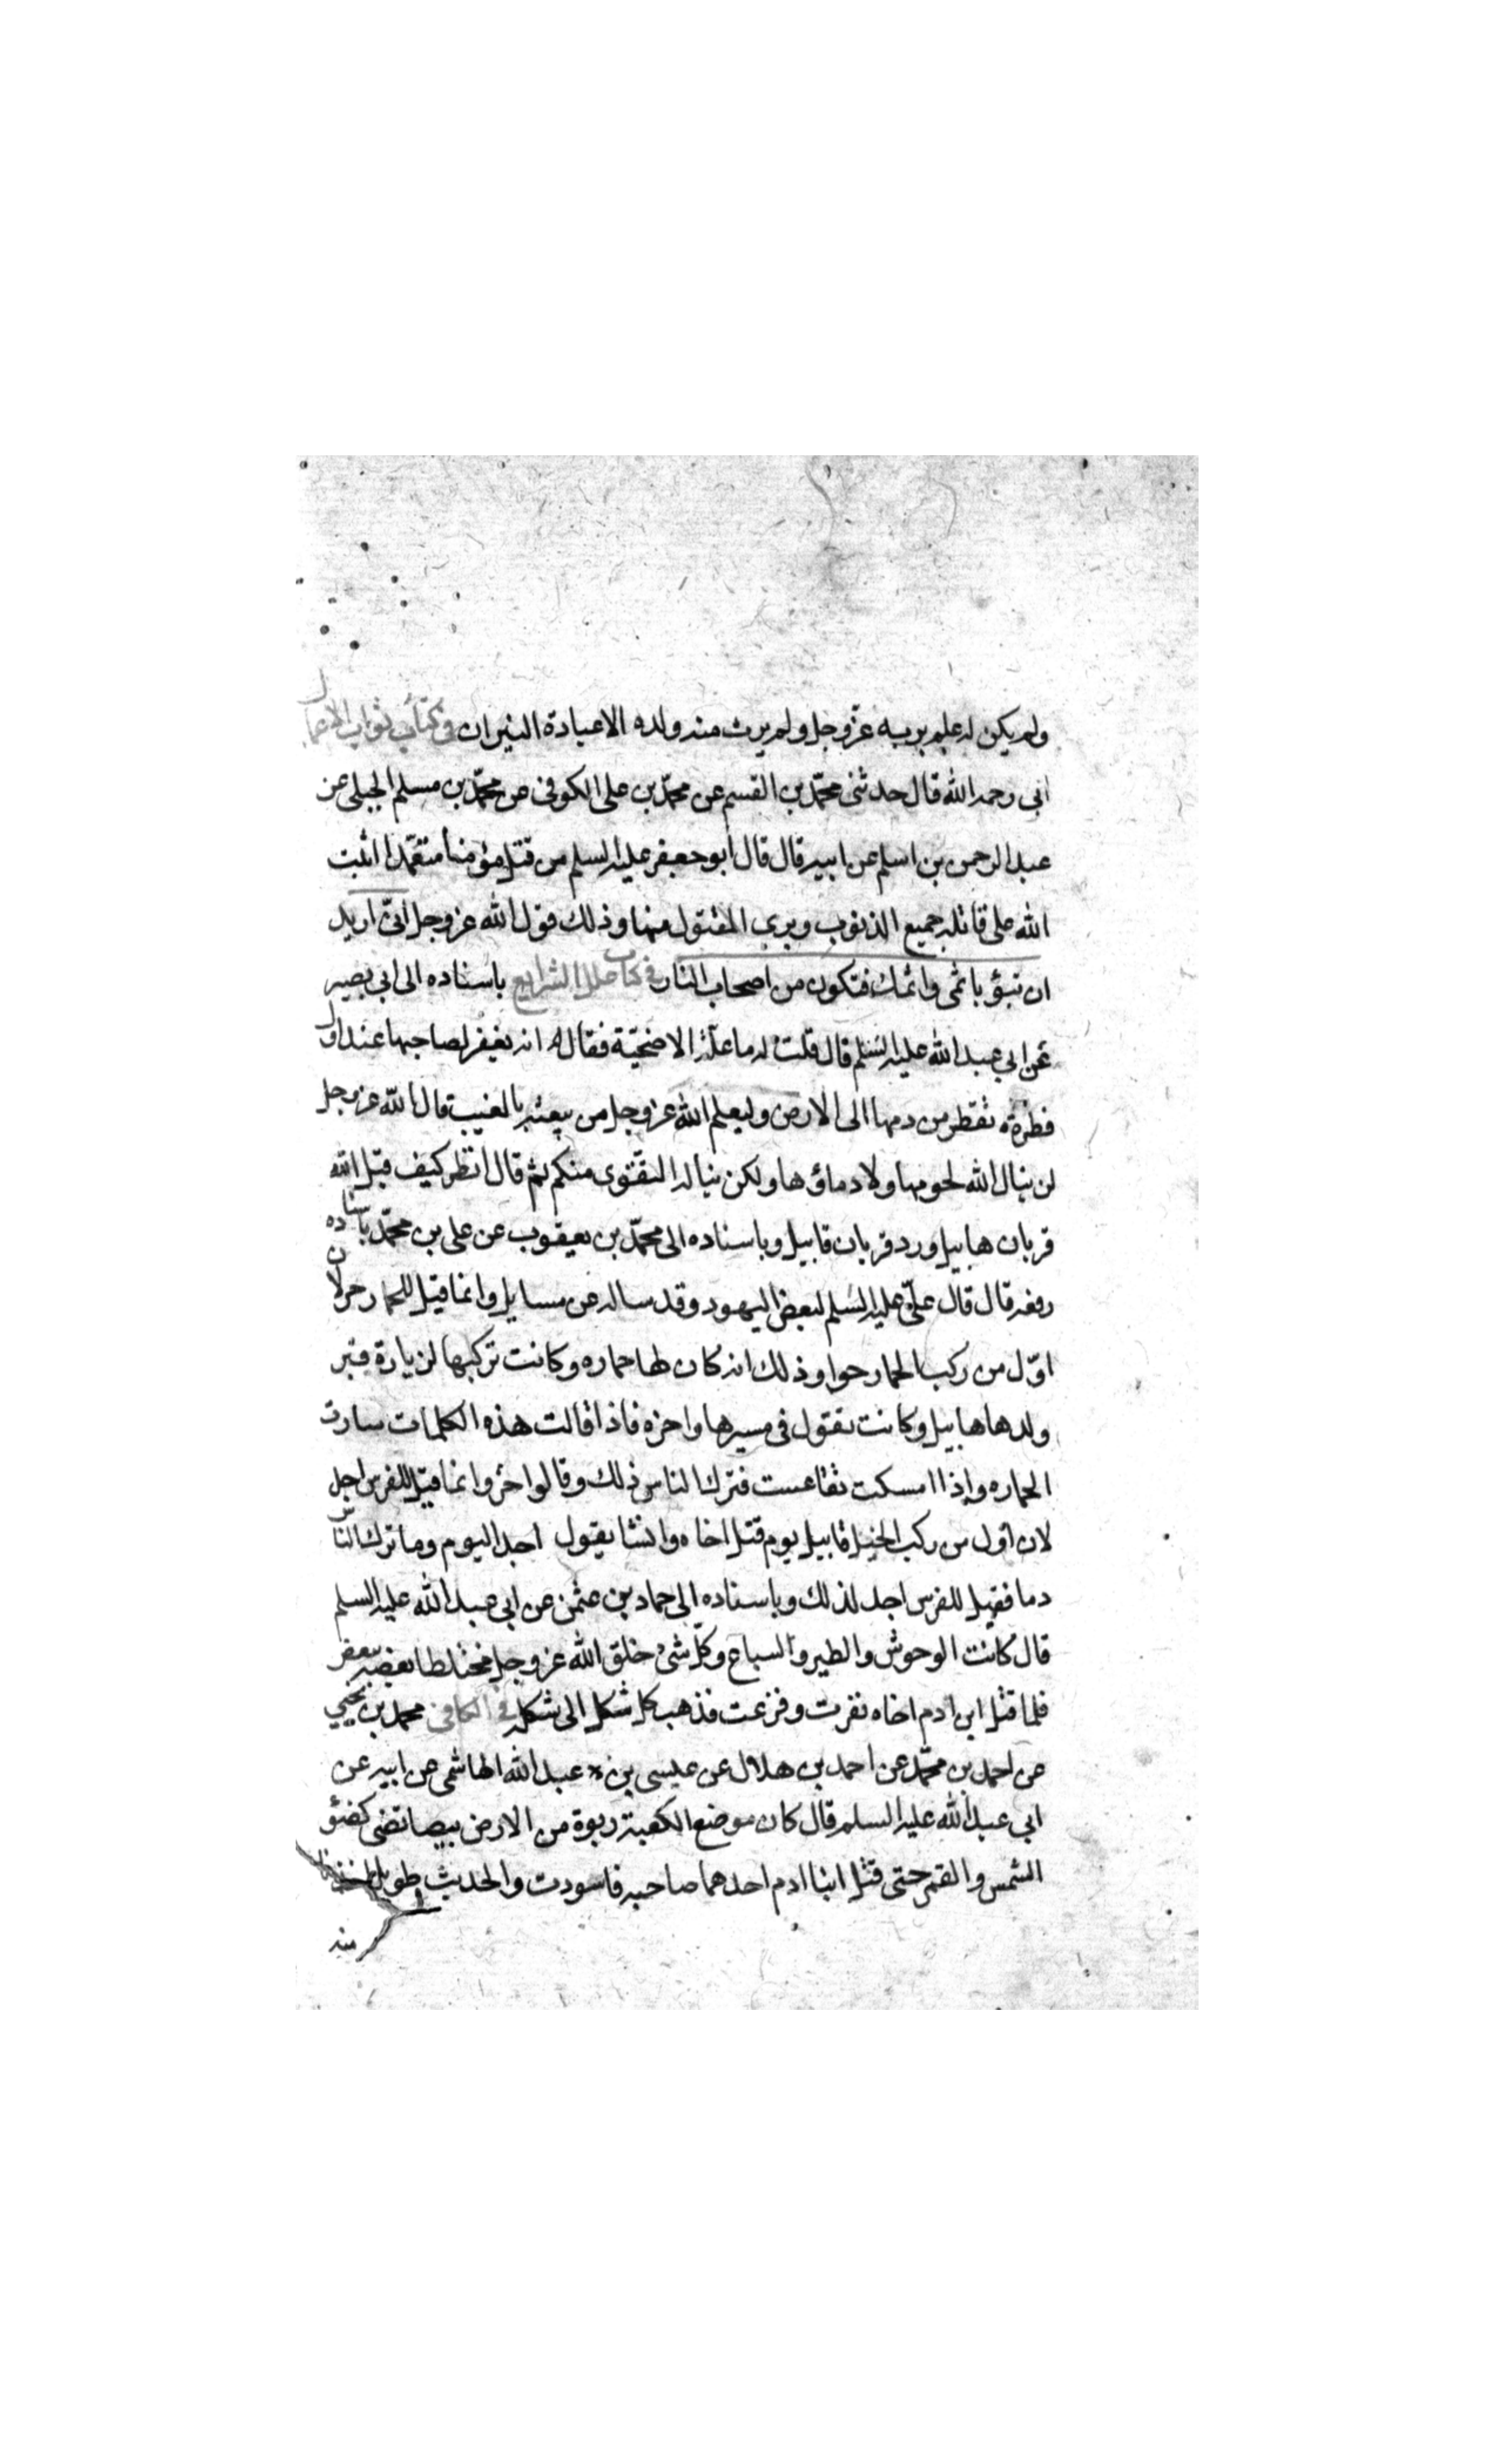 ولم يكن له علم بربه عزّ وجل ولم يرث منه ولده الا عبادة النيران في كتاب ثواب الاعمال
ابي رحمه الله قال حدثنى محمّد بن القسم عن محمّد بن على الكوفى عن محمّد بن مسلم الجبلى عن
عبد الرحمن بن اسلم عن ابيه قال قال ابو جعفر عليه السلم من قتل مؤمنا متعمّدا اثبت
الله على قاتله جميع الذنوب وبرى المقتول منها وذلك قول الله عز وجل انىّ اريد
ان تبؤ باثمى واثمك فتكون من اصحاب النار في كتاب علل الشرايع باسناده الى ابى بصير
عن ابي عبد الله عليه السّلم قال قلت له ما علة الاضحيّة فقال له انه يغفر لصاحبها عند اول
قطرة تقطر من دمها الى الارض وليعلم الله عز وجل من يتقيه بالغيب قال الله عز وجل
لن ينال الله لحومها ولا دماؤها ولكن يناله التقوى منكم ثم قال انظر كيف قبل الله
قربان هابيل ورد قربان قابيل وباسناده الى محمّد بن يعقوب عن على بن محمّد باسناده
رفعه قال قال علىّ عليه السّلم لبعض اليهود وقد ساله عن مسايل وانما قيل للحمار حر لان
اوّل من ركب الحمار حوا وذلك انه كان لها حماره وكانت تركبها لزيارة قبر
ولدها هابيل وكانت تقول فى مسيرها واحره فاذا قالت هذه الكلمات سارت
الحماره واذا امسكت تقاعست فترك الناس ذلك وقالوا حر وانما قيل للفرس اجد
لان اول من ركب الخيل قابيل يوم قتل اخاه وانشا يقول اجد اليوم وما ترك النّاس
دما فقيل للفرس اجد لذلك وباسناده الى حماد بن عثمن عن ابي عبد الله عليه السلم
قال كانت الوحوش والطير والسباع وكلّ شئ خلق الله عز وجل مختلطا بعضه ببعض
فلما قتل ابن ادم اخاه نفرت وفزعت فذهب كل شكل الى شكله في الكافي محمد بن يحيي
عن احمد بن محمّد عن احمد بن هلال عن عيسى بن عبد الله الهاشمى عن ابيه عن
ابي عبد الله عليه السلم قال كان موضع الكعبة ربوة من الارض بيضا تضى كضؤ
الشمس والقمر حتى قتل ابنا ادم احدهما صاحبه فاسودت والحديث طويل
منه